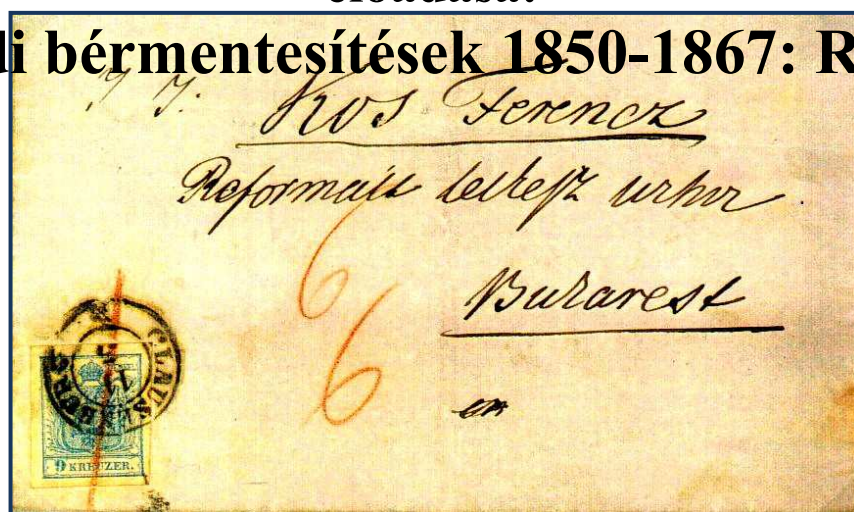 di bérmentesítések 1850-1867: R
Kos Ferencz
Reformált lelkész urhoz
Bukarest
CLAUSENBURG
9 KREUZER.
6
6